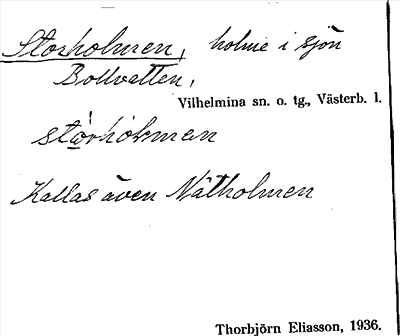 Storholmen, holme i sjön
Bollvatten,
Vilhelmina sn. o. tg., Västerb. l.
stòrhólmen
Kallas även Nätholmen
Thorbjörn Eliasson, 1936.